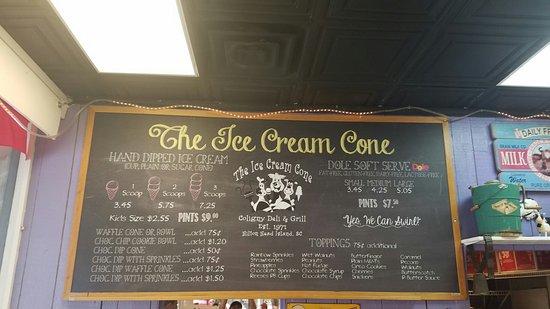 The Ice Cream Cone
HAND DIPPED ICE CREAM
(CUP, PLAIN OR SUGAR CONE)
1 Scoop 2 Scoop 3 Scoops
3.45 5.75 7.25
Kids Size $2.55 PINTS $9.00
WAFFLE CONE OR BOWL ...add 75¢
CHOC CHIP COOKIE BOWL ...add $1.20
CHOC DIP CONE ...add 50¢
CHOC DIP WITH SPRINKLES ...add 75¢
CHOC DIP WAFFLE CONE ...add $1.25
CHOC DIP WITH SPRINKLES ...add $1.50
The Ice Cream Cone
Coligny Deli & Grill
Est. 1971
Hilton Head Island, SC
DOLE SOFT SERVE Dole
FAT-FREE, GLUTEN-FREE, DAIRY-FREE, LACTOSE-FREE
SMALL MEDIUM LARGE
3.45 4.25 5.05
PINTS $7.50
Yes, We Can Swirl!
TOPPINGS 75¢ additional
Rainbow Sprinkles Wet Walnuts Butterfinger Caramel
Strawberries Peanuts Plain M&M's Pecans
Pineapples Hot Fudge Oreo Cookies Whip Cream
Chocolate Sprinkles Chocolate Syrup Cherries Butterscotch
Reese's PB Cups Chocolate Chips Snickers P. Butter Sauce
DAILY
MILK
Water
PURE